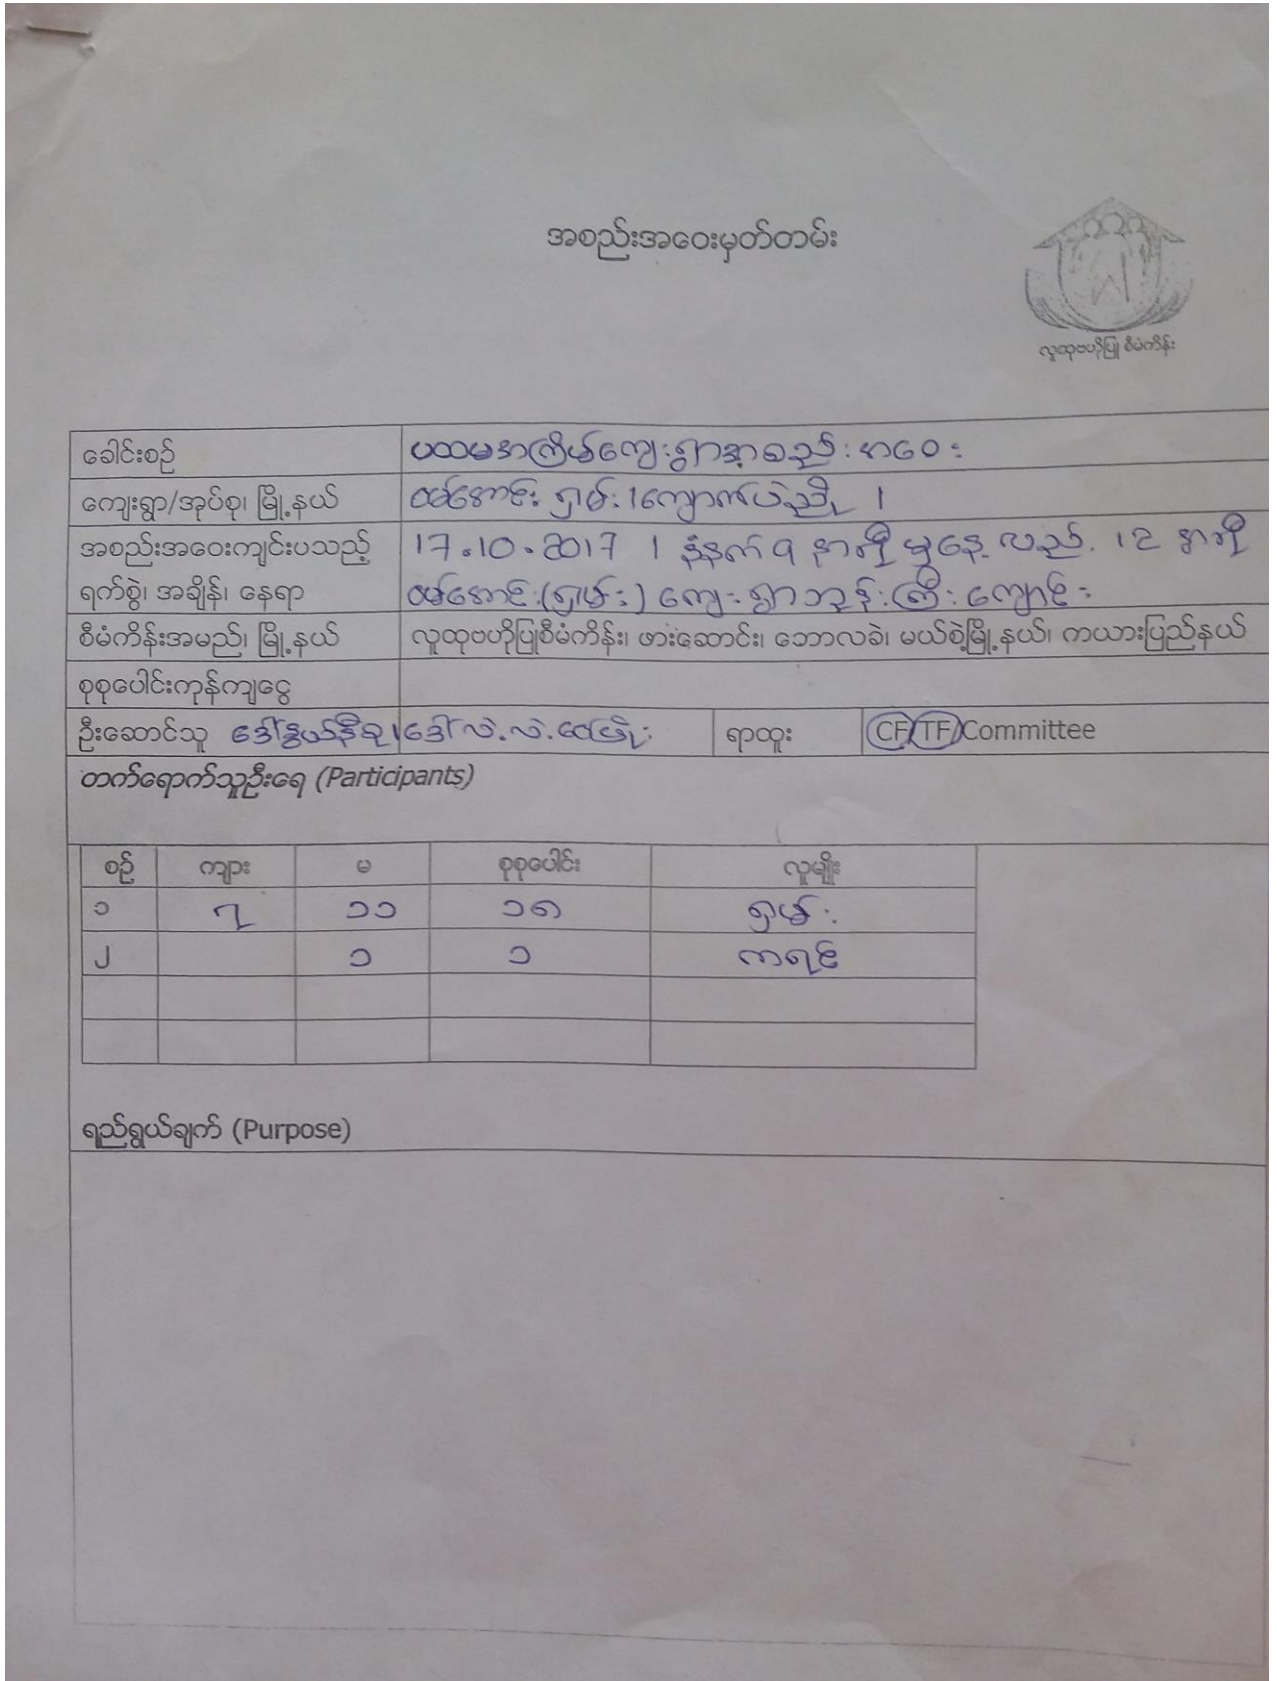 အစည်းအဝေးမှတ်တမ်း
လူထုဗဟိုပြု စီမံကိန်း
ခေါင်းစဉ် ပထမအကြိမ်ကျေးရွာအစည်းအဝေး
ကျေးရွာ/အုပ်စု၊ မြို့နယ် ဝမ်အောင်း ရှမ်း၊ကျောက်ပဲညို ၊
အစည်းအဝေးကျင်းပသည့် 17.10.2017 ၊ နံနက် ၎ နာရီ မှနေ့လည် 12 နာရီ
ရက်စွဲ၊ အချိန်၊ နေရာ ဝမ်အောင်း(ရှမ်း) ကျေးရွာဘုန်းကြီးကျောင်း
စီမံကိန်းအမည်၊ မြို့နယ် လူထုဗဟိုပြုစီမံကိန်း၊ ဖားဆောင်း၊ ဘောလခဲ၊ မယ်စဲ့မြို့နယ်၊ ကယားပြည်နယ်
စုစုပေါင်းကုန်ကျငွေ
ဦးဆောင်သူ ဒေါ်နွယ်နီခု၊ဒေါ်လဲ့လဲ့ဝေဖြိုး ရာထူး CF/TF/Committee
တက်ရောက်သူဦးရေ (Participants)
စဉ် ကျား မ စုစုပေါင်း လူမျိုး
၁ ၇ ၁၁ ၁၈ ရှမ်း
၂ ၁ ၁ ကရင်
ရည်ရွယ်ချက် (Purpose)